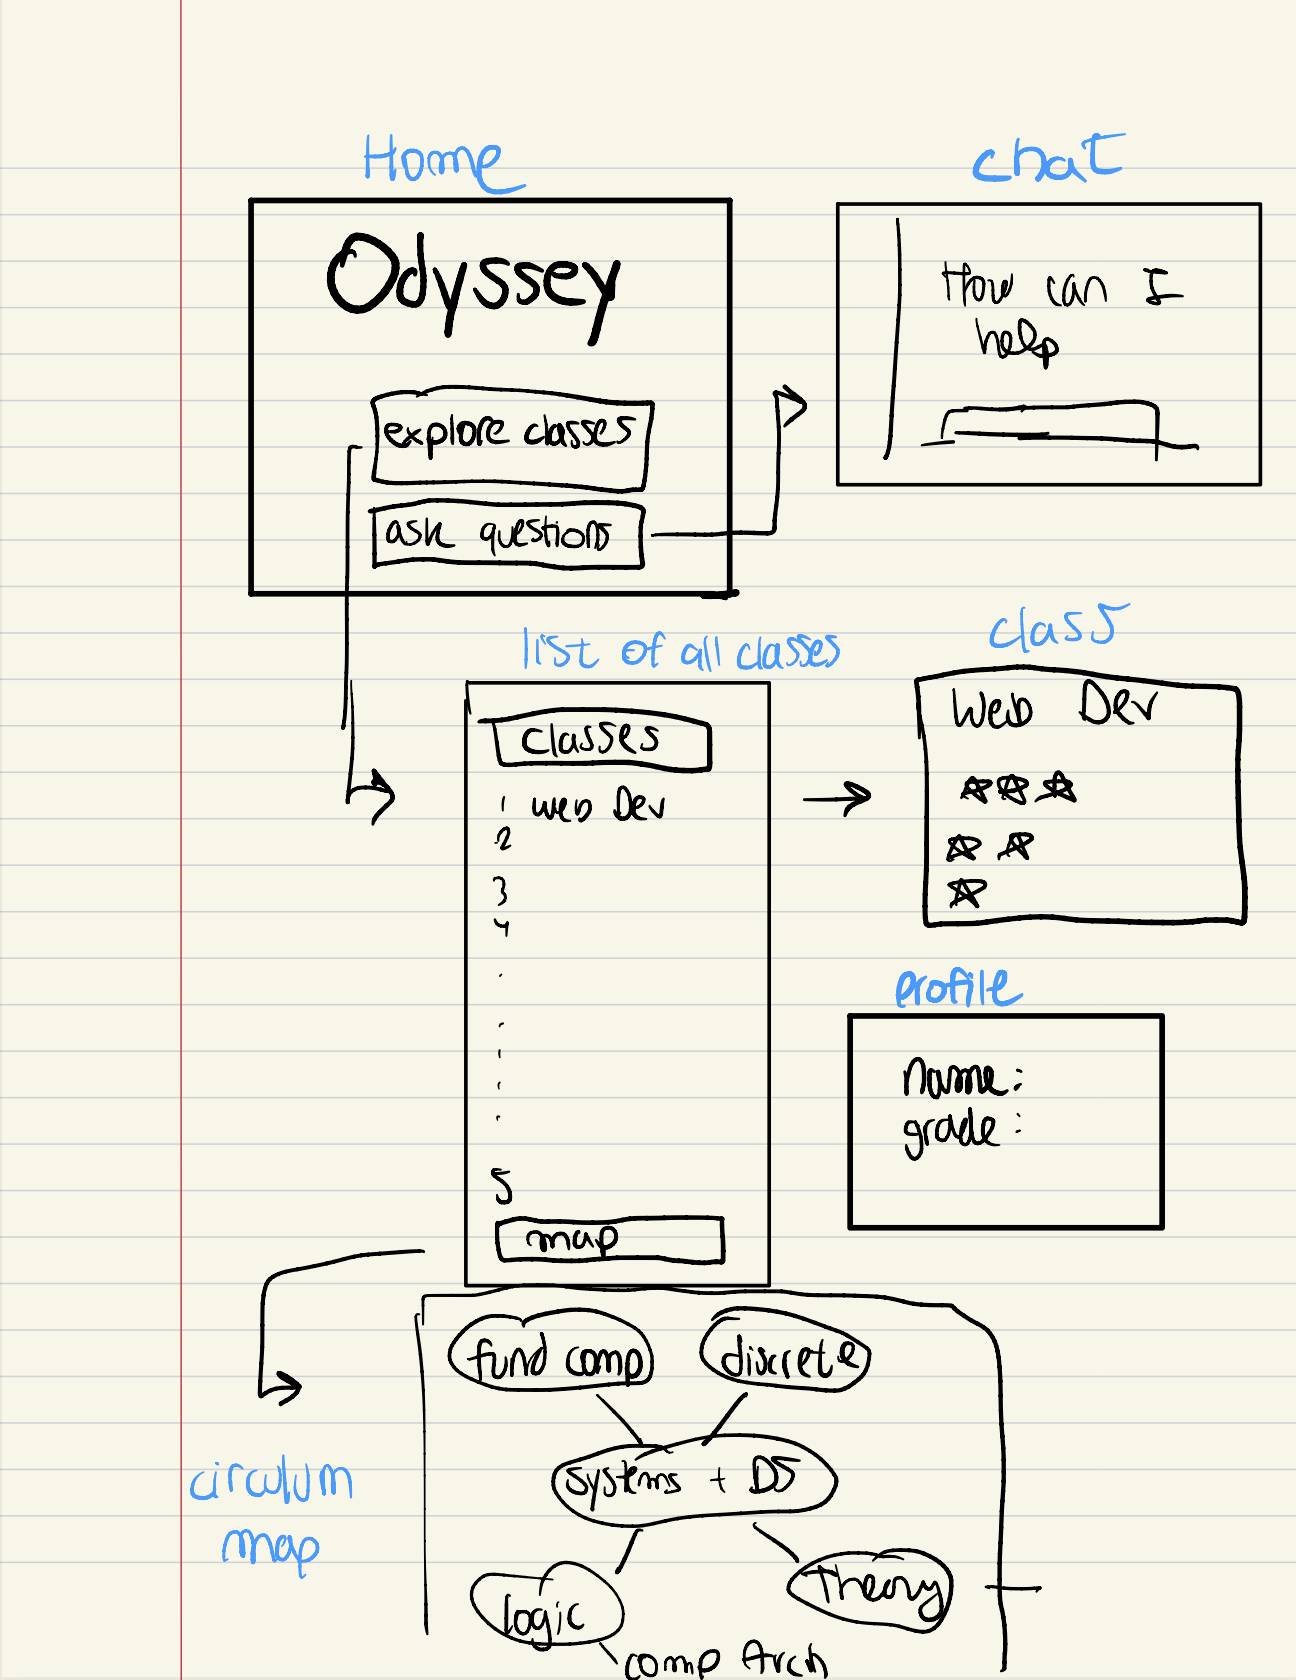 Home
Odyssey
explore classes
ask questions
chat
How can I
help
list of all classes
classes
1 web Dev
2
3
4
5
map
class
Web Dev
profile
name:
grade:
circulum
map
fund comp
discrete
systems + DS
logic
theory
comp Arch